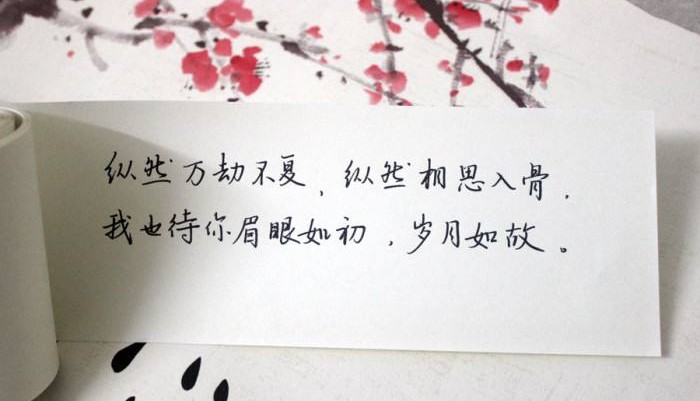 纵然万劫不复、纵然相思入骨，
我也待你眉眼如初，岁月如故。